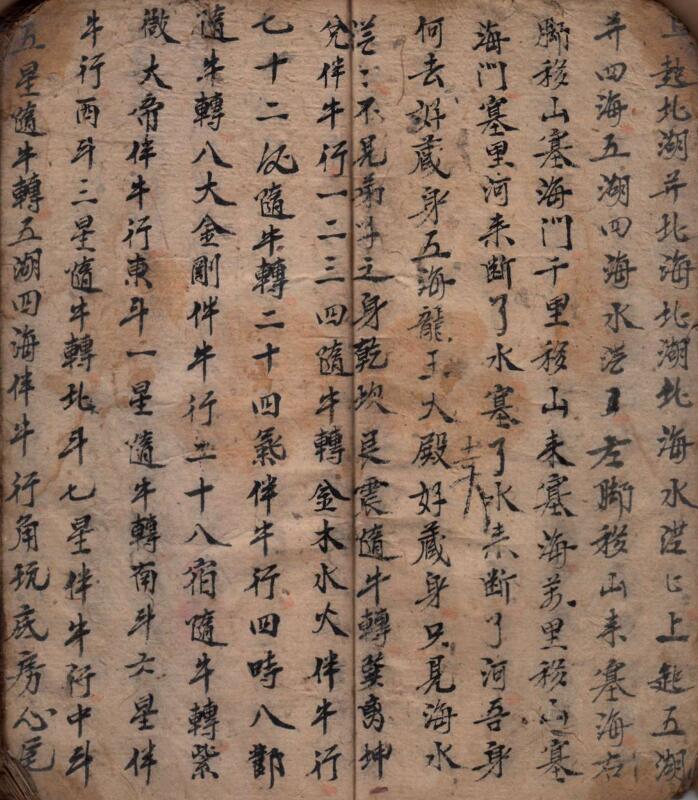 上起北湖并北海北湖北海水洪匕上起五湖
并四海五湖四海水洪了左脚移山来塞海右
脚移山塞海門千里移山来塞海万里移山塞
海門塞里河来断了水塞了水来断了河吾身
何去好藏身五海龍王大殿好藏身只見海水
茫〻不見弟子之身乾坎艮震隨牛轉巽离坤
兌伴牛行一二三四隨牛轉金木水火伴牛行
七十二侯隨牛轉二十四氣伴牛行四時八節
隨牛轉八大金剛伴牛行二十八宿隨牛轉紫
微大帝伴牛行東斗一星隨牛轉南斗六星伴
牛行西斗三星隨牛轉北斗七星伴牛行中斗
五星隨牛轉五湖四海伴牛行角亢底房心尾